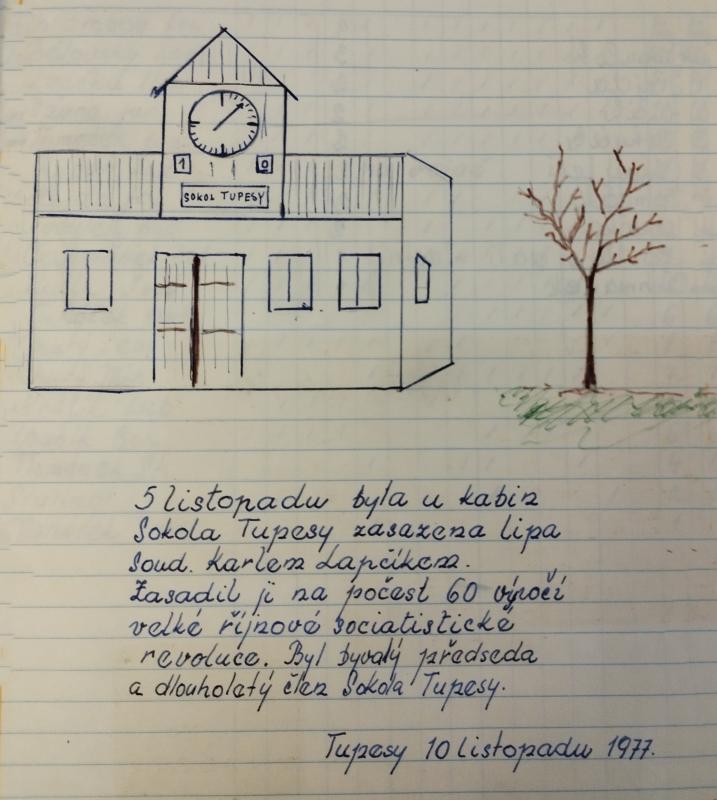 1 0
SOKOL TUPESY
5 listopadu byla u kabin
Sokola Tupesy zasazena lipa
soud. Karlem Lapčíkem.
Zasadil ji na počest 60 výročí
velké říjnové sociatistické
revoluce. Byl bývalý předseda
a dlouholetý člen Sokola Tupesy.
Tupesy 10 listopadu 1977.